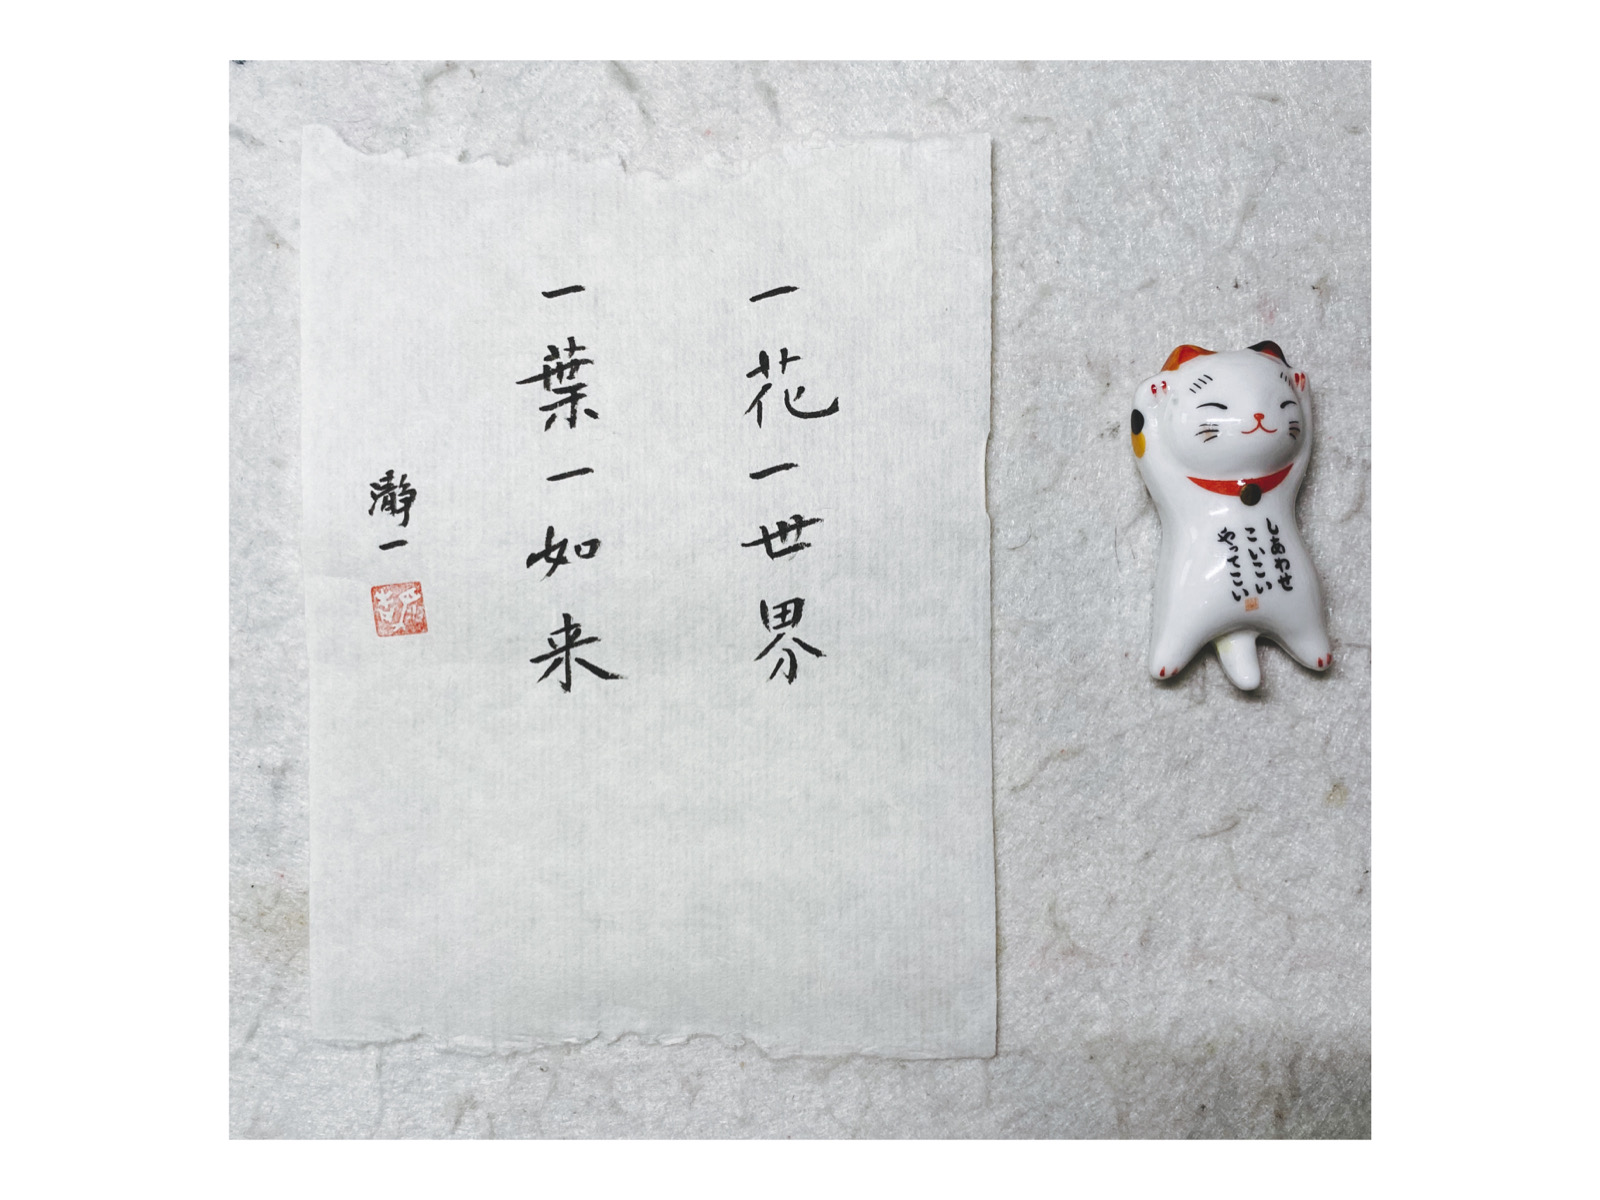 一花一世界
一葉一如来
瀞一
しあわせ
こいこい
やってこい